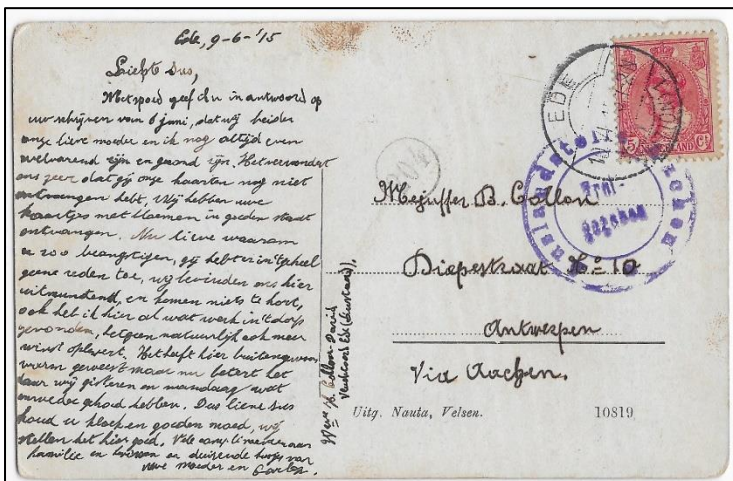 Ede, 9-6-'15
Liefste Sus,
Met spoed geef ik u in antwoord op
uw schrijven van 6 juni, dat wij beiden
onze lieve moeder en ik nog altijd even
welvarend zijn en gezond zijn. Het verwondert
ons zeer dat gij onze kaarten nog niet
ontvangen hebt. Wij hebben uwe
kaartjes met bloemen in goeden staat
ontvangen. Nu lieve waarom
u zoo beangstigen, gij hebt er in 't geheel
geene reden toe, wij bevinden ons hier
uitmuntend, en komen niets te kort,
ook heb ik hier al wat werk in 't dorp
gevonden, hetgeen natuurlijk ook meer
winst oplevert. Het heeft hier buitengewoon
warm geweest maar nu betert het
daar wij gisteren en maandag wat
onweder gehad hebben. Dus lieve Sus
houd u kloek en goeden moed, wij
stellen het hier goed. Vele complimenten aan
familie en vrienden en duizende kusjes van
uwe moeder en Carlos.
Collon-David
Vluchtoord Ede (Holland)
EDE
5 Ct
NEDERLAND
204
Auslandstelle Aachen
Frei-
gegeben
Mejuffer B. Collon
Diepestraat No 10
Antwerpen
Via Aachen.
Uitg. Nauta, Velsen. 10819